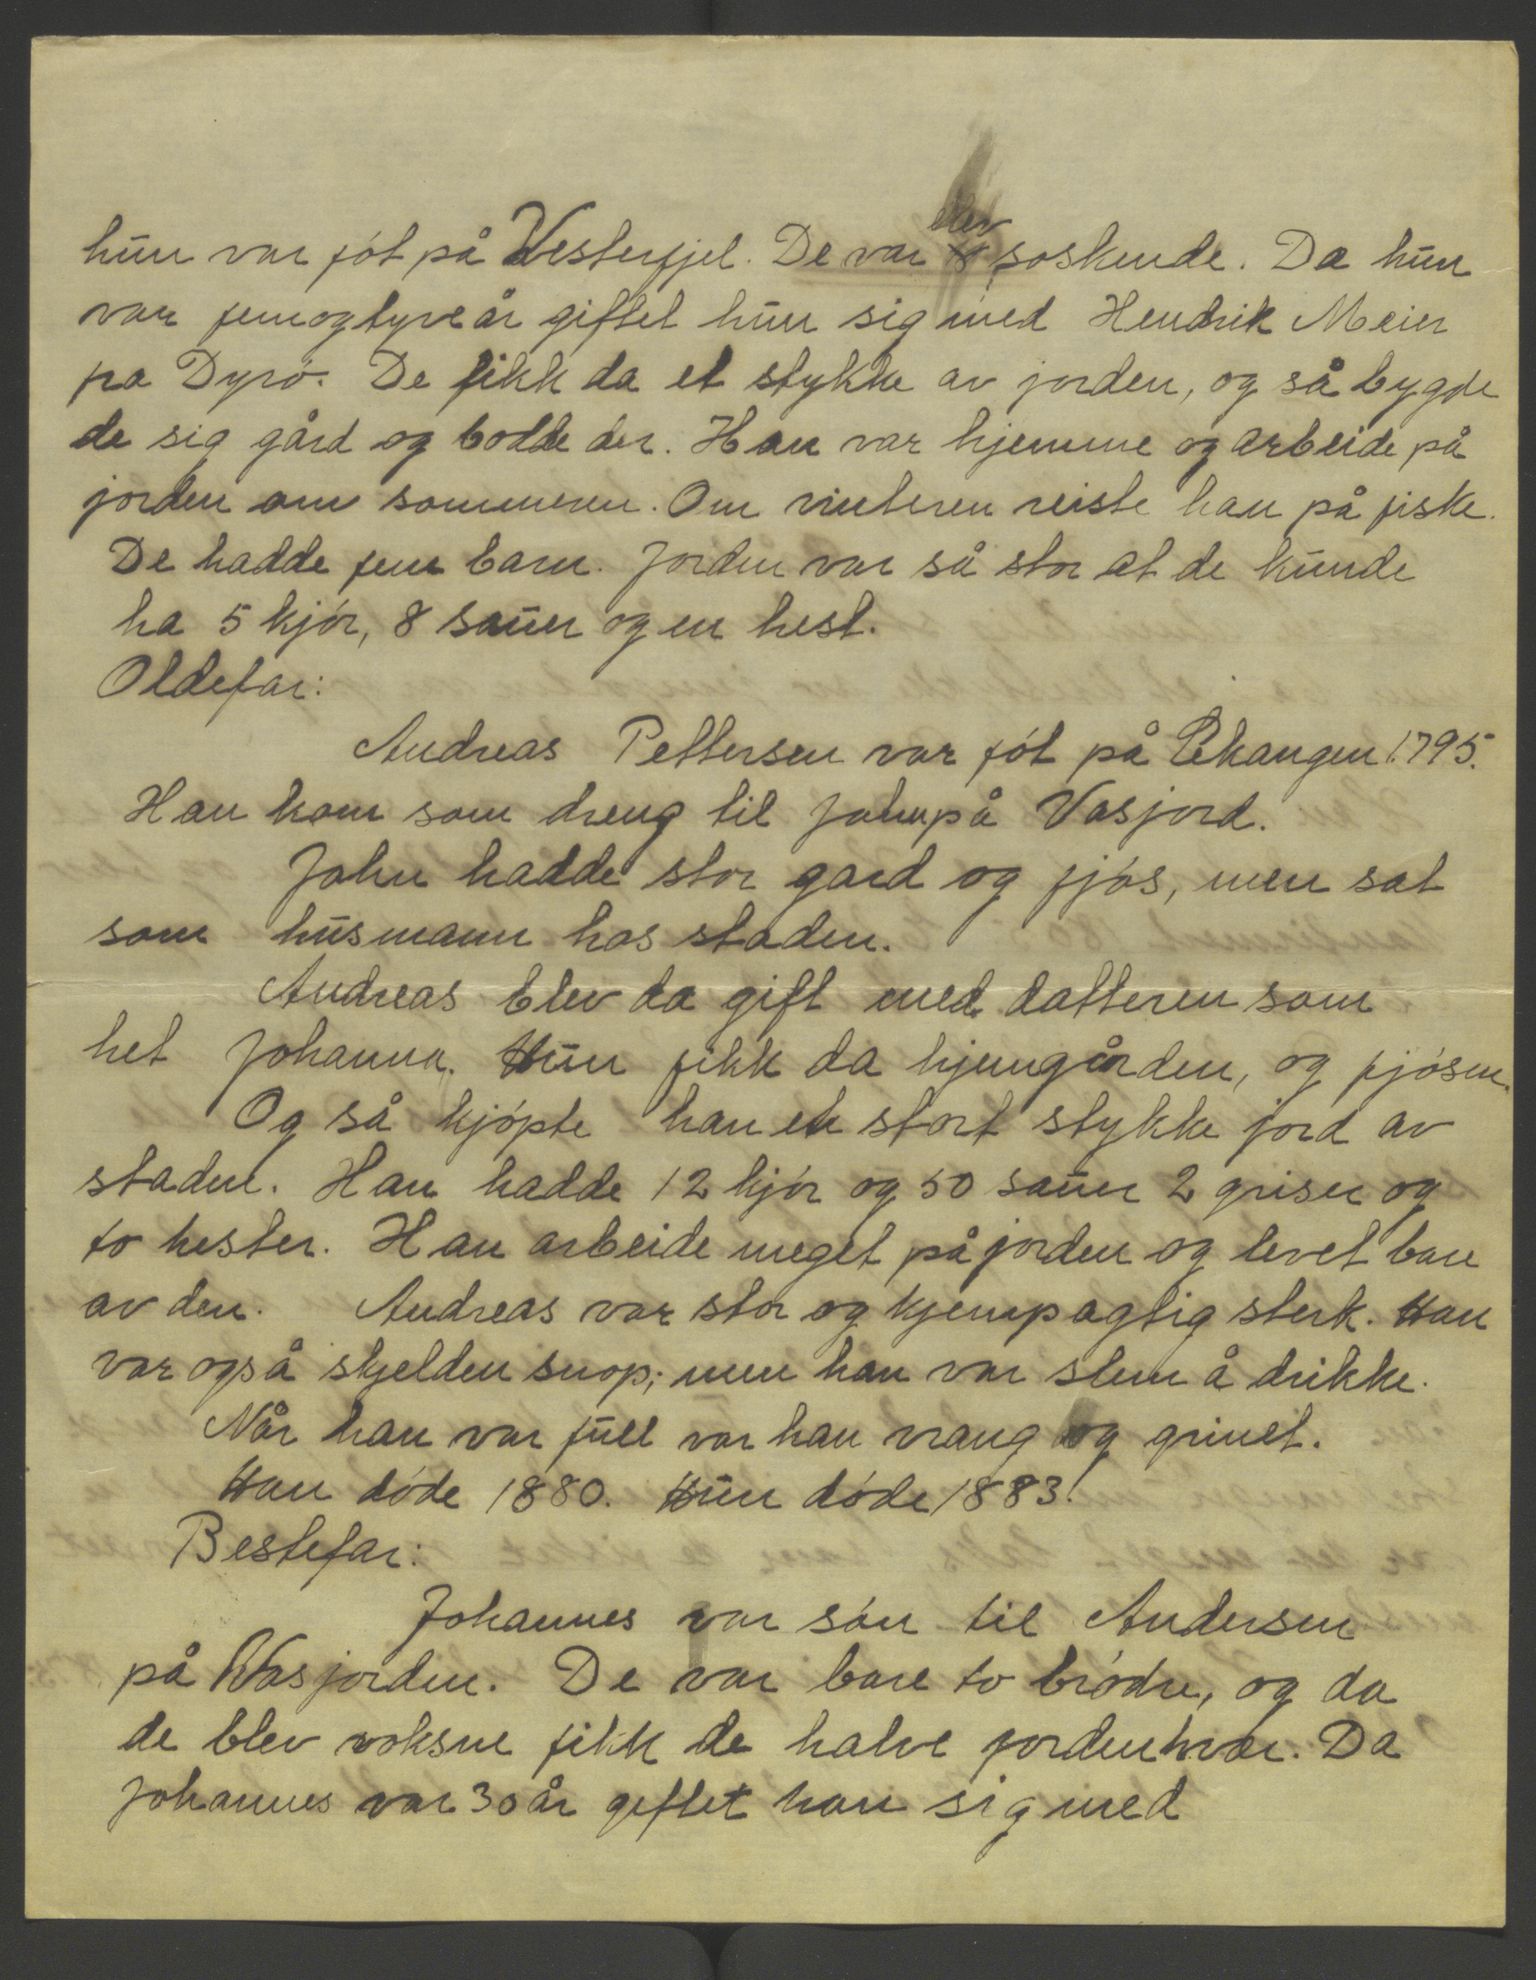 hun var føt på Vesterfjel. De var elev søskende. Da hun
var femogtyve år giftet hun sig med Hendrik Meier
pa Dyrø. De fikk da et stykke av jorden, og så bygde
de sig gård og bodde der. Han var hjemme og arbeide på
jorden om sommeren. Om vinteren reiste han på fiske.
De hadde fem barn. Jorden var så stor at de kunde
ha 5 kjør, 8 sauer og en hest.
Oldefar:
Andreas Pettersen var føt på Lekangen 1795.
Han kom som dreng til John på Vasjord.
John hadde stor gard og fjøs, men sat
som husmann hos staden.
Andreas blev da gift med datteren som
het Johanna. Hun fikk da hjemgården, og fjøsen.
Og så kjøpte han et stort stykke jord av
staden. Han hadde 12 kjør og 50 sauer 2 griser og
to hester. Han arbeide meget på jorden og levet bare
av den. Andreas var stor og kjempagtig sterk. Han
var også skjelden snop; men han var slem å drikke.
Når han var full var han vrang og grinet.
Han døde 1880. Hun døde 1883!
Bestefar:
Johannes var søn til Andersen
på Vasjorden. De var bare to brødre, og da
de blev voksne fikk de halve jorden hvær. Da
Johannes var 30 år geftet han sig med